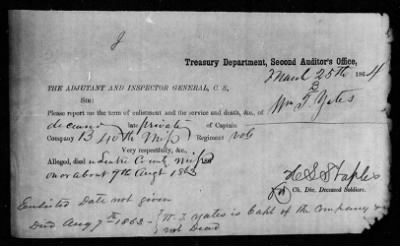 Treasury Department, Second Auditor's Office,
March 25th 1864
THE ADJUTANT AND INSPECTOR GENERAL, C. S.,
SIR:
Please report on the term of enlistment and the service and death, &c., of Wm F. Yates
deceased late private of Captain
Company B 40th Miss Regiment vols
Very respectfully, &c.,
Alleged, died County Miss 186
on or about 7th Augt 1863
H. S. Staples
Ch. Div. Deceased Soldiers.
Enlisted Date not given
Died Aug 7th 1863 - W. F. Yates is Capt of the Company &
not Dead